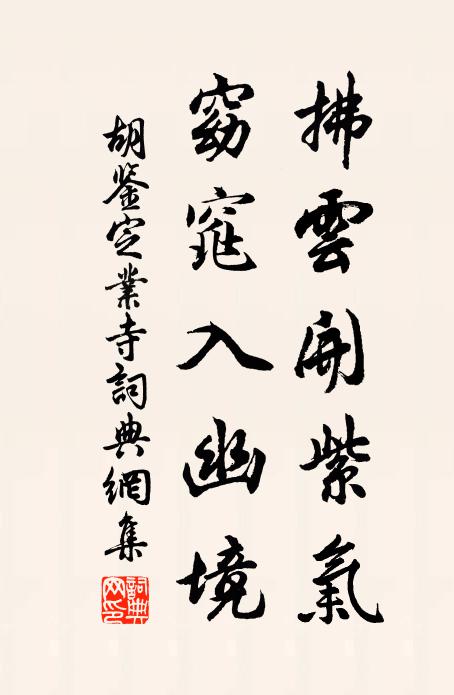 拂雲開紫氣
窈窕入幽境
胡鉴定業寺詞典網集
詞典网印